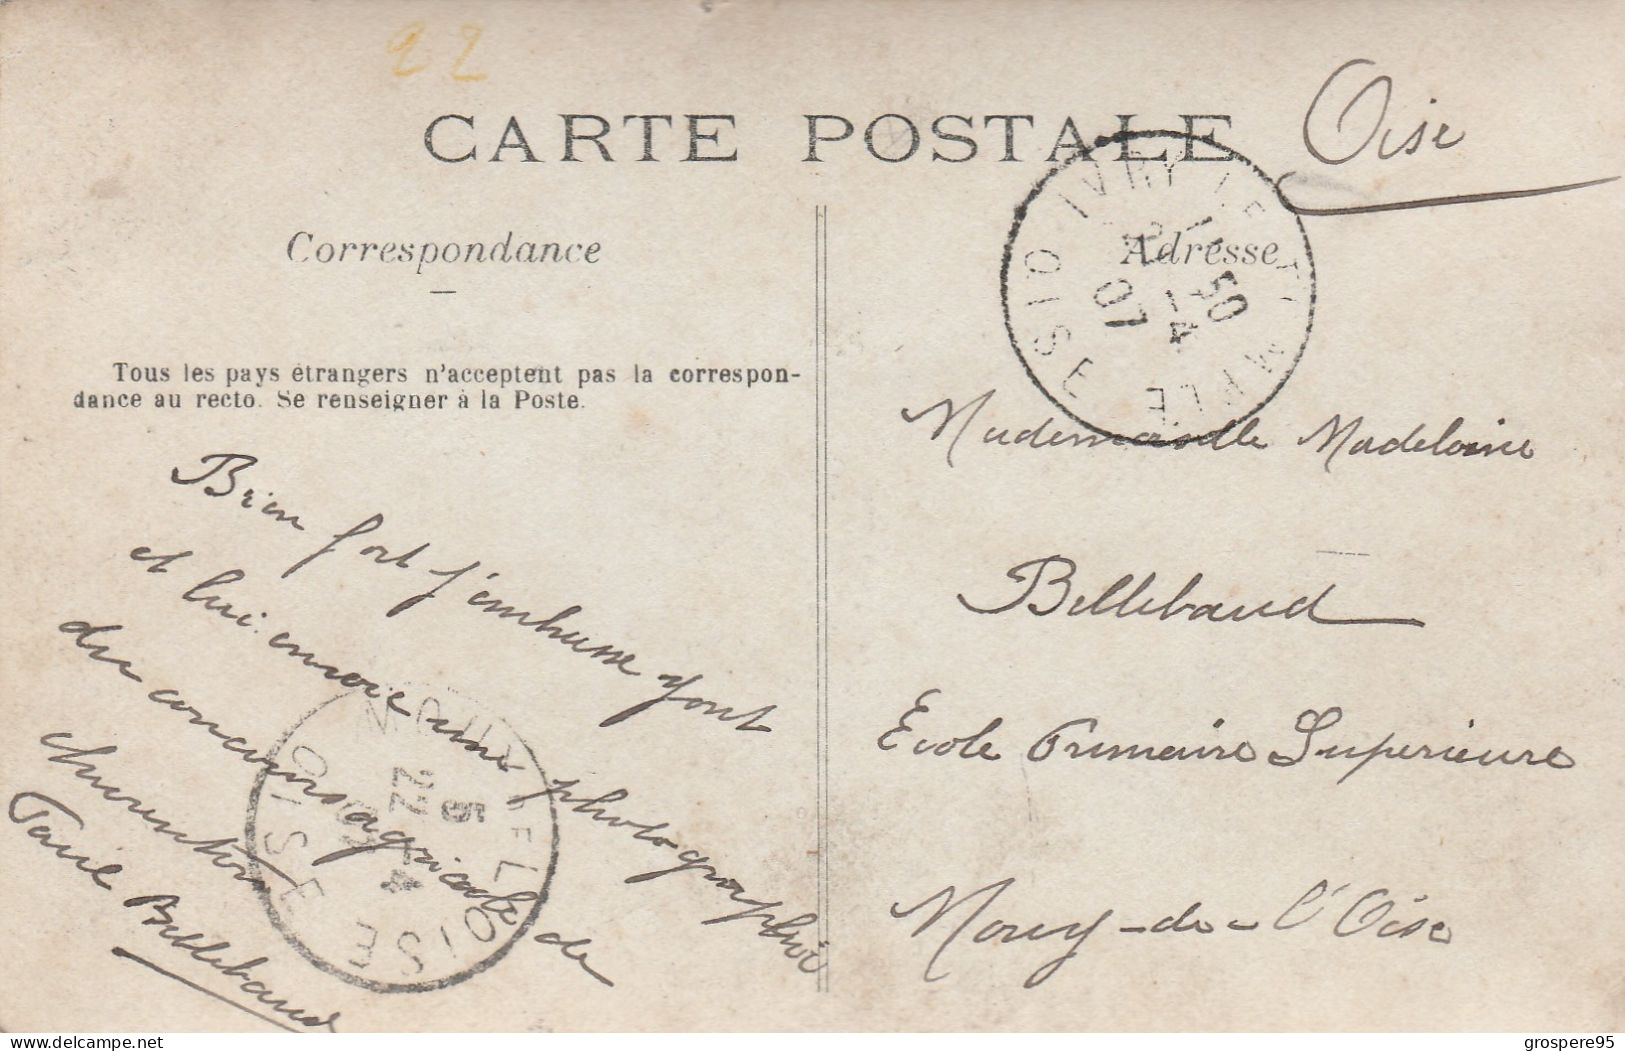 22
CARTE POSTALE
Oise
Correspondance
Adresse
Tous les pays étrangers n'acceptent pas la correspon-
dance au recto. Se renseigner à la Poste.
Bien fort j'embrasse Yont
et lui envoie une photographie
du concours agricole de
Paul Bellebaud
Mademoiselle Madeleine
Bellebaud
Ecole Primaire Superieure
Mouy-de-l'Oise
IVRY LE TEMPLE
OISE
50
-4
07
5
22 -4
OISE
OISE
www.delcampe.net
grospere95